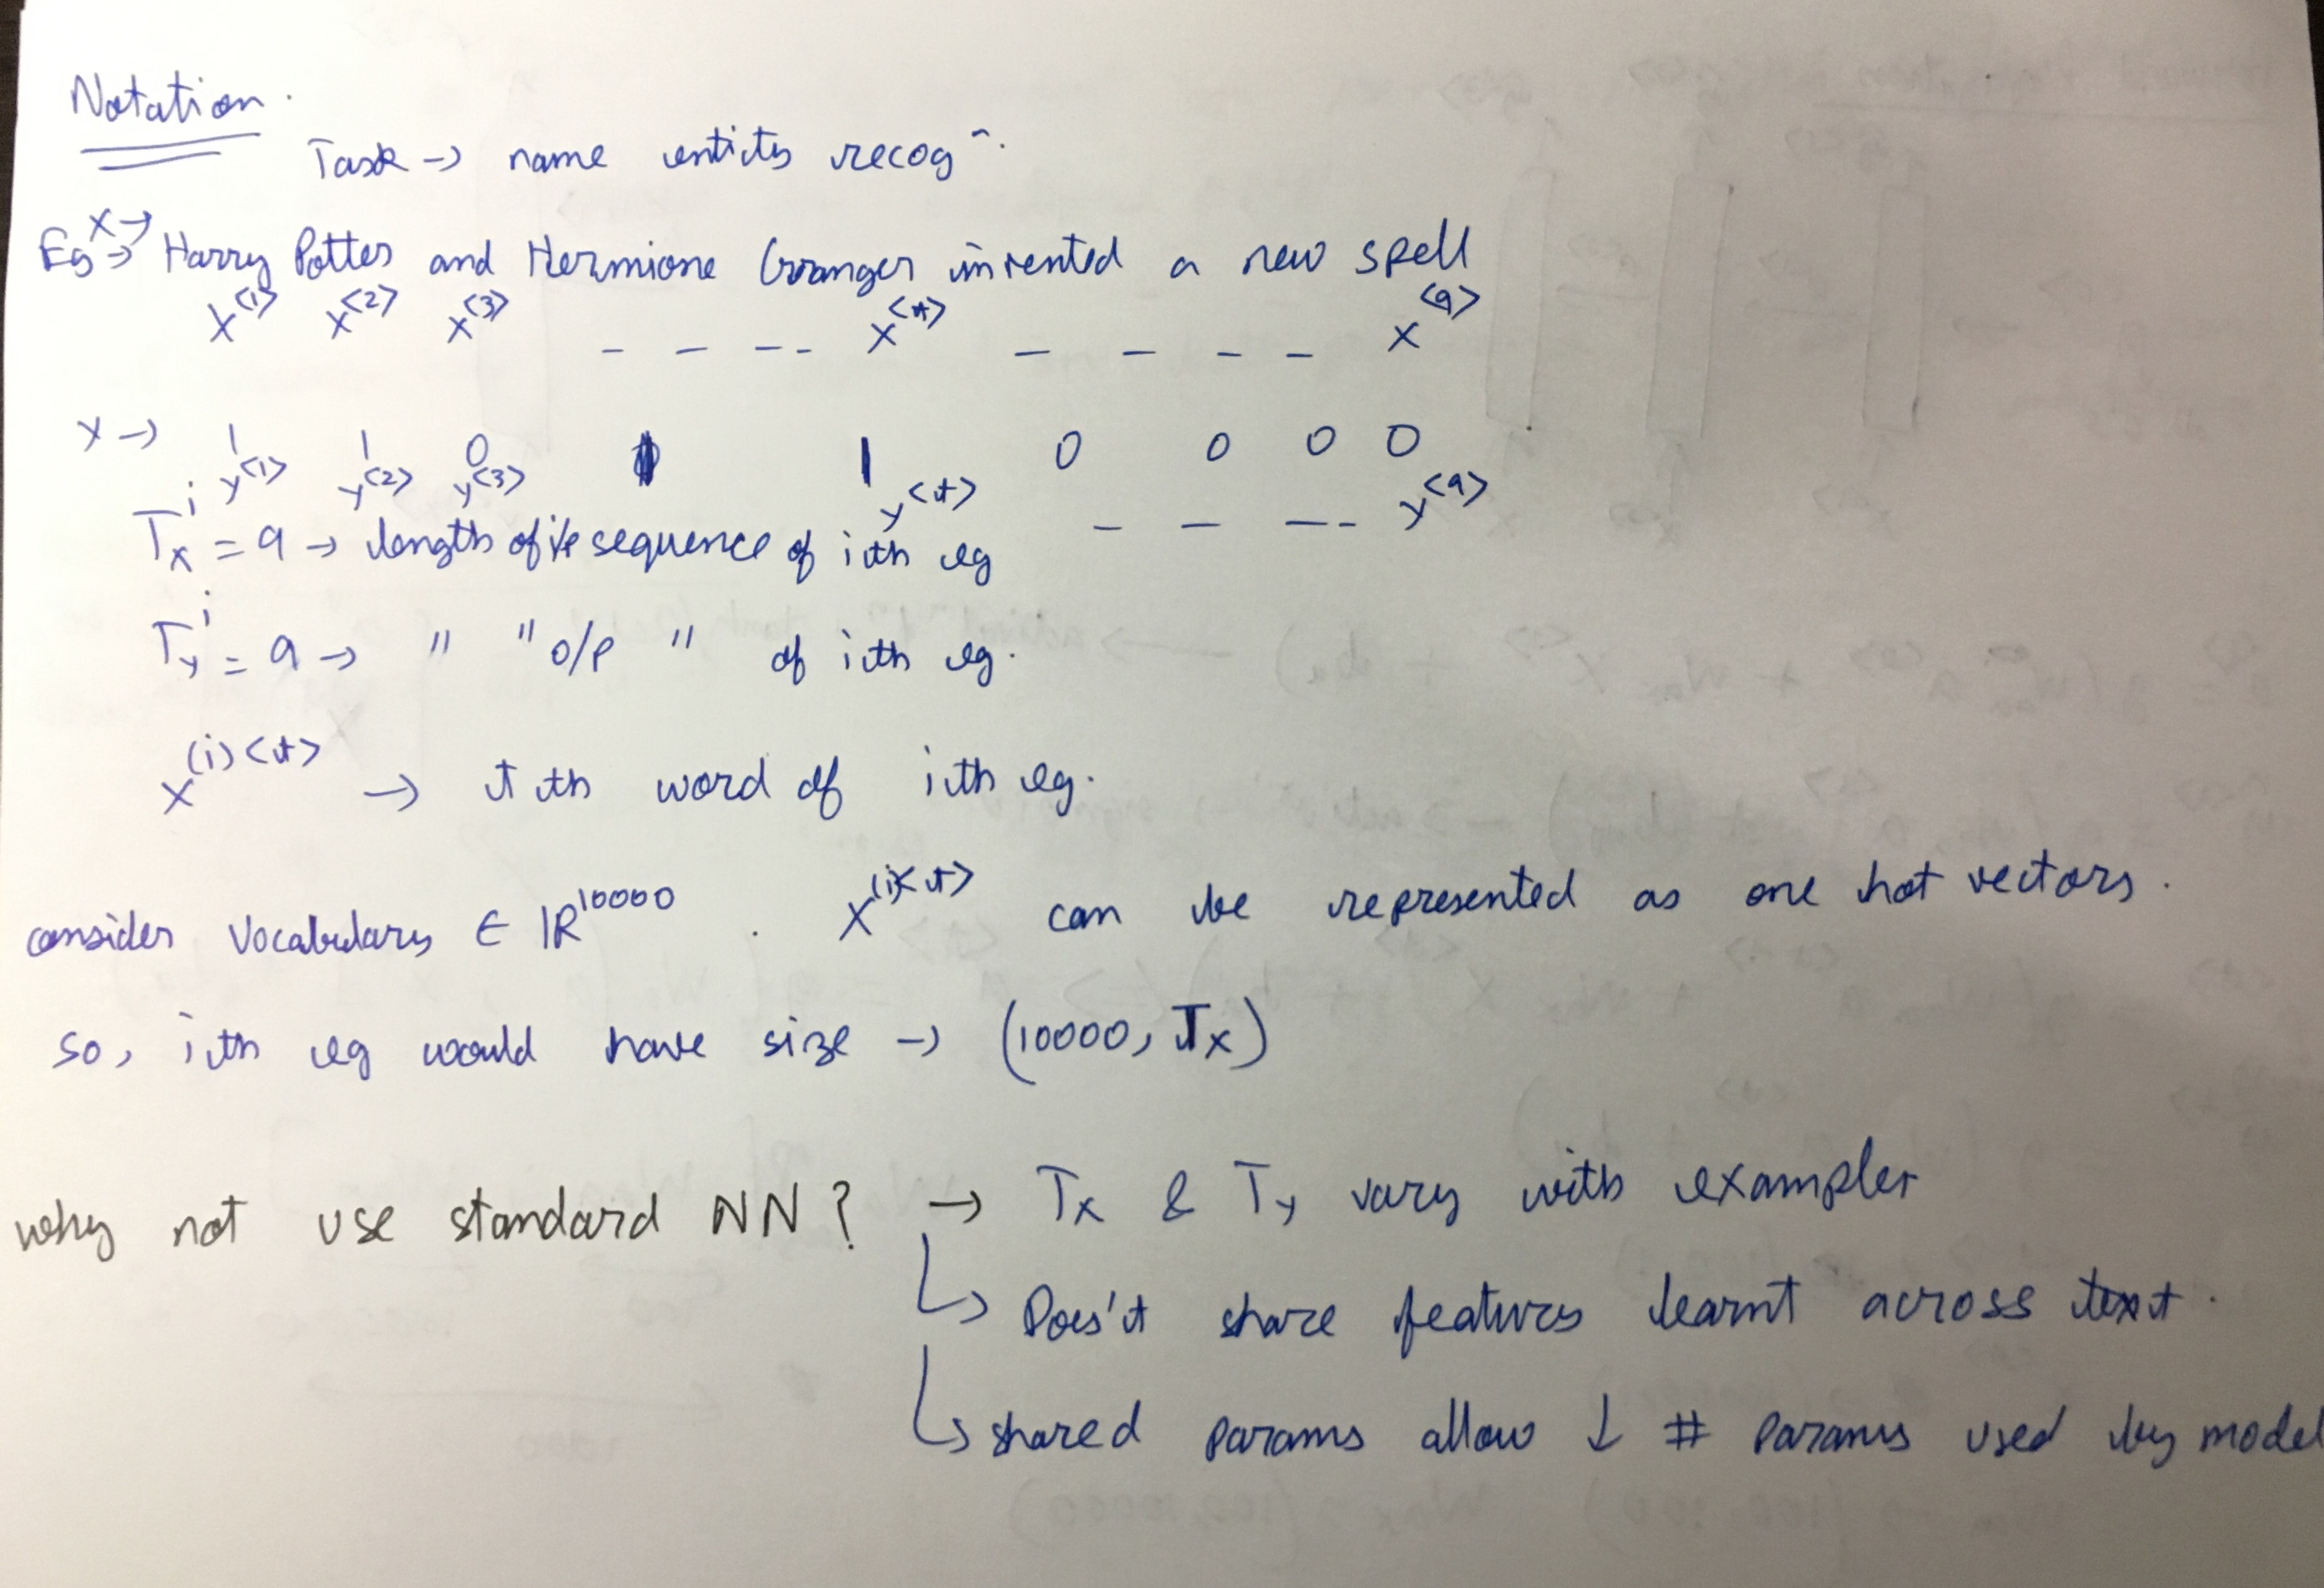 Notation.
Task → name entity recogⁿ.
X →
Eg → Harry Potter and Hermione Granger invented a new spell
X<1> X<2> X<3> - - - - X<t> - - - - X<9>
Y → 1 1 0 1 1 0 0 0 0
y<1> y<2> y<3> y<t> - - - - y<9>
Tₓⁱ = 9 → length of i/p sequence of ith eg
Tᵧⁱ = 9 → " " o/p " of ith eg.
X(i)<t> → t th word of ith eg.
consider Vocabulary ∈ ℝ¹⁰⁰⁰⁰ . X(i)<t> can be represented as one hot vectors.
so, ith eg would have size → (10000, Tx)
why not use standard NN? → Tx & Ty vary with examples
↳ Does't share features learnt across text.
↳ shared params allow ↓ # params used by model